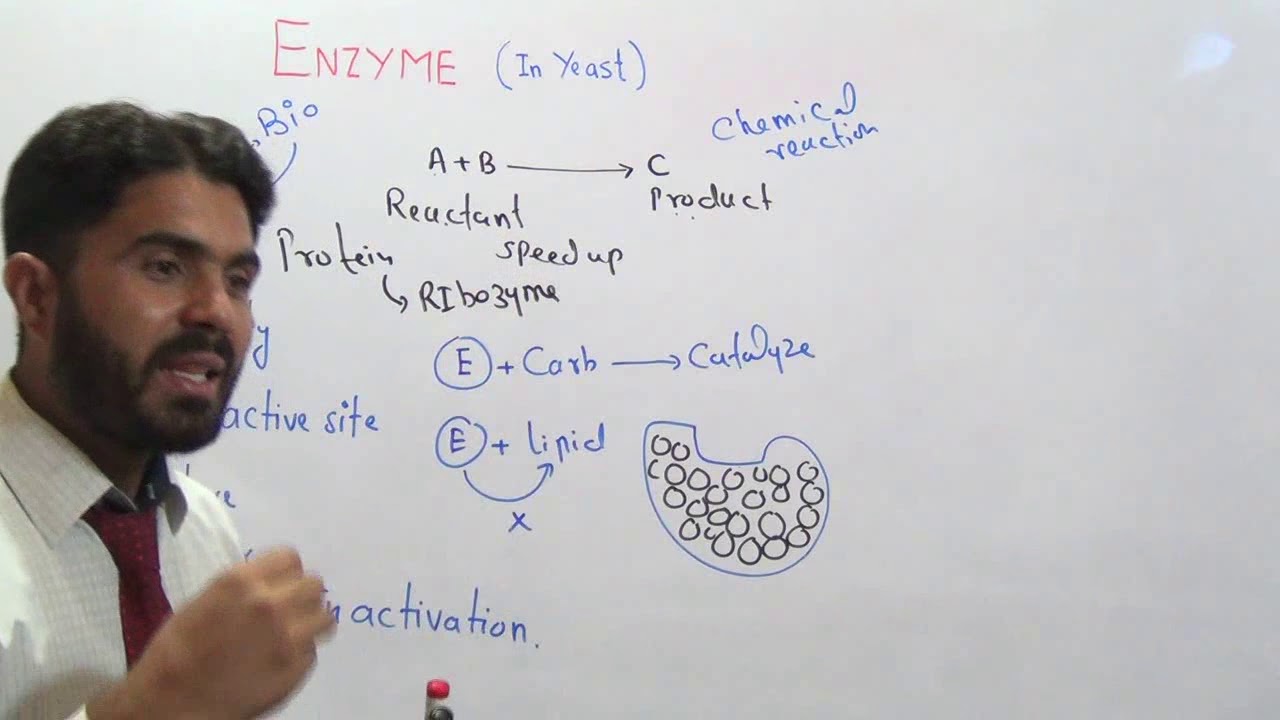 ENZYME (In Yeast)
Bio
Chemical
reaction
A + B ⟶ C
Reactant
Product
Protein
speed up
↳ RIbozyme
E + Carb ⟶ Catalyze
active site
E + lipid
x
inactivation.